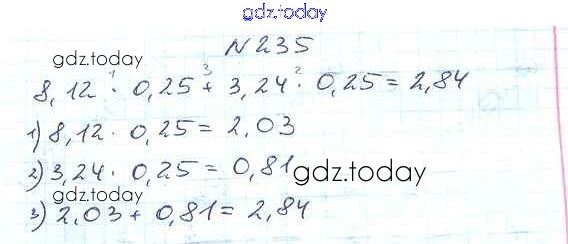 gdz.today
N 235
gdz.today
8,12 ·¹ 0,25 +³ 3,24 ·² 0,25 = 2,84
1) 8,12 · 0,25 = 2,03
2) 3,24 · 0,25 = 0,81 gdz.today
gdz.today
3) 2,03 + 0,81 = 2,84